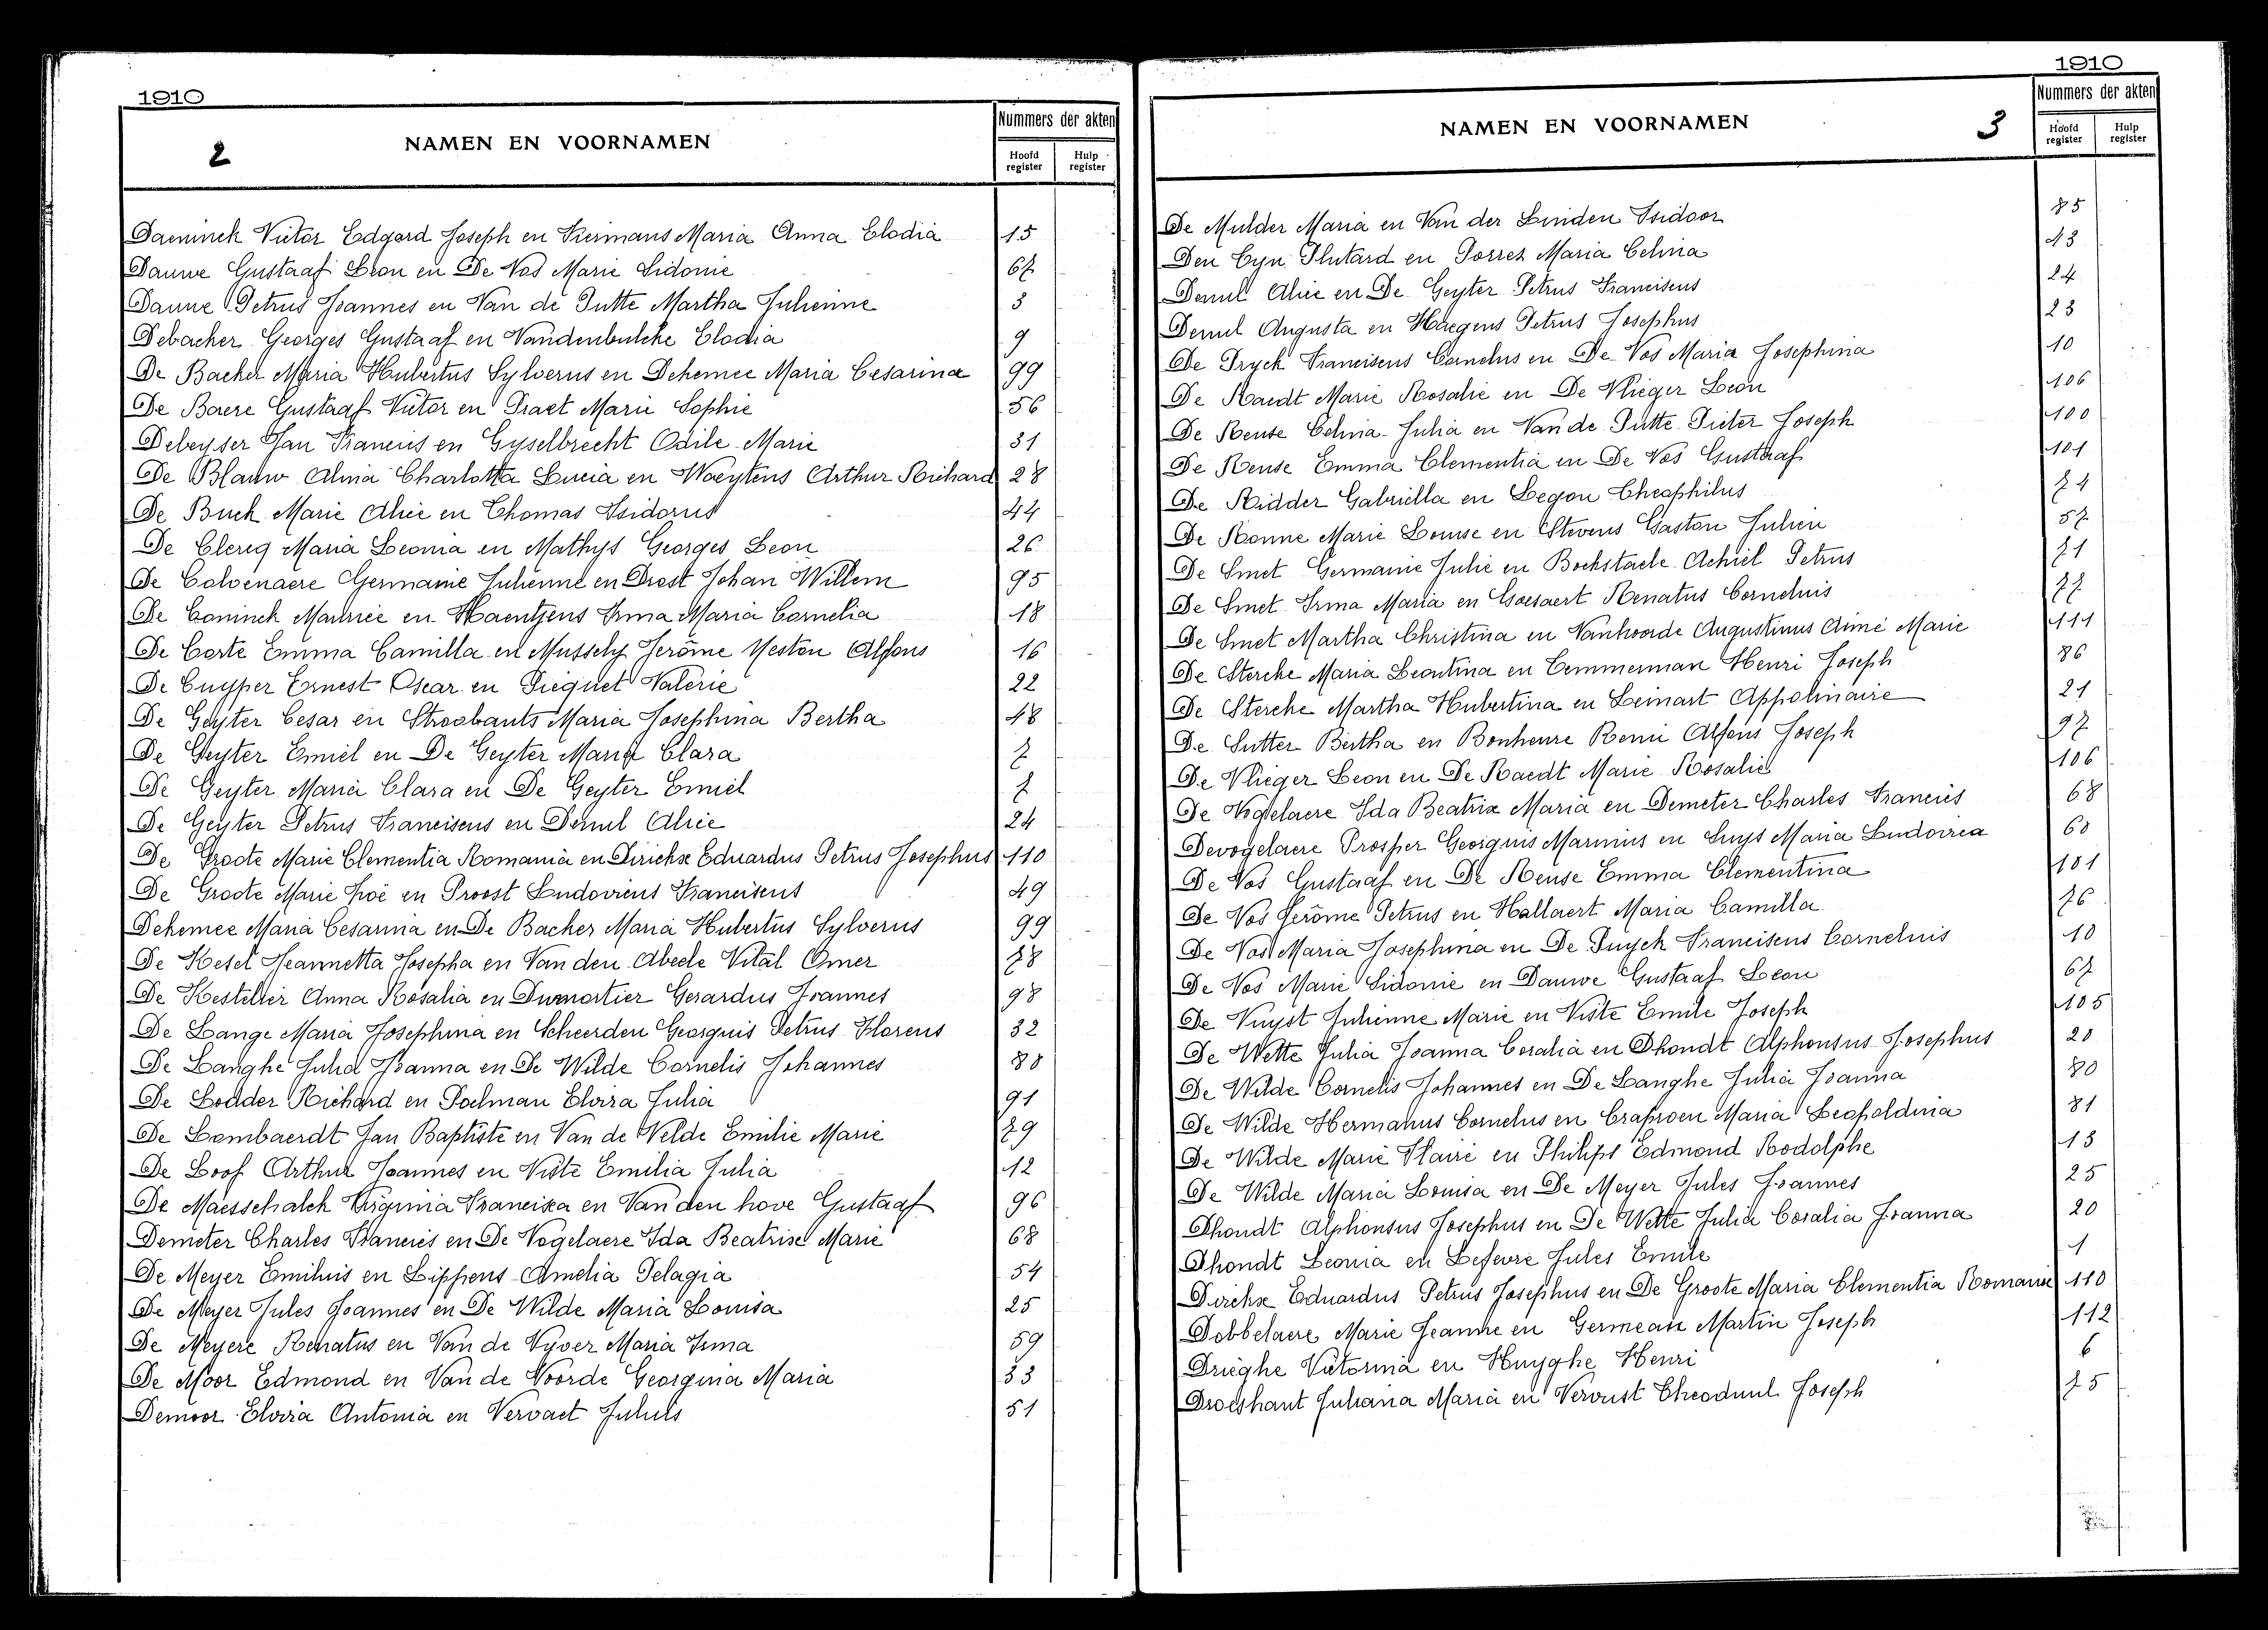 1910
2 NAMEN EN VOORNAMEN
Nummers der akten
Hoofd register Hulp register
Daeninck Victor Edgard Joseph en Kiermans Maria Anna Elodia 15
Dauwe Gustaaf Leon en De Vos Marie Sidonie 67
Dauwe Petrus Joannes en Van de Putte Martha Julienne 3
Debacker Georges Gustaaf en Vandenbulcke Elodia 9
De Backer Maria Hubertus Sylverus en Dekemee Maria Cesarina 99
De Baere Gustaaf Victor en Praet Marie Sophie 56
Debeyser Jan Francies en Gyselbrecht Odile Marie 31
De Blauw Alina Charlotta Lucia en Waeytens Arthur Richard 28
De Buck Marie Alice en Thomas Isidorus 44
De Clercq Maria Leonia en Mathys Georges Leon 26
De Colvenaere Germanie Julienne en Drost Johan Willem 95
De Coninck Maurice en Haentjens Irma Maria Cornelia 18
De Corte Emma Camilla en Mussely Jerôme Neston Alfons 16
De Cuyper Ernest Oscar en Piequet Valerie 22
De Geyter Cesar en Stroobants Maria Josephina Bertha 48
De Geyter Emiel en De Geyter Maria Clara 7
De Geyter Maria Clara en De Geyter Emiel 7
De Geyter Petrus Franciscus en Demul Alice 24
De Groote Marie Clementia Romania en Dirickx Eduardus Petrus Josephus 110
De Groote Marie Zoë en Proost Ludovicus Franciscus 49
Dekemee Maria Cesarina en De Backer Maria Hubertus Sylverus 99
De Kesel Jeannetta Josepha en Van den Abeele Vital Omer 78
De Kestelier Anna Rosalia en Dumortier Gerardus Joannes 98
De Lange Maria Josephina en Scheerden Georguis Petrus Florens 32
De Langhe Julia Joanna en De Wilde Cornelis Johannes 80
De Lodder Richard en Poelman Elvira Julia 91
De Lombaerdt Jan Baptiste en Van de Velde Emilie Marie 79
De Loof Arthur Joannes en Viste Emilia Julia 12
De Maesschalck Virginia Francisca en Van den hove Gustaaf 96
Demeter Charles Francies en De Vogelaere Ida Beatrix Marie 68
De Meyer Emilius en Lippens Amelia Pelagia 54
De Meyer Jules Joannes en De Wilde Maria Louisa 25
De Meyere Renatus en Van de Vyver Maria Irma 59
De Moor Edmond en Van de Voorde Georgina Maria 33
Demoor Elvira Antonia en Vervaet Julius 51
1910
NAMEN EN VOORNAMEN 3
Nummers der akten
Hoofd register Hulp register
De Mulder Maria en Van der Linden Isidoor 85
Den Cyn Plutard en Porrez Maria Celina 43
Demul Alice en De Geyter Petrus Franciscus 24
Demul Augusta en Haegens Petrus Josephus 23
De Pryck Franciscus Cornelus en De Vos Maria Josephina 10
De Raedt Marie Rosalie en De Vlieger Leon 106
De Reuse Celina Julia en Van de Putte Pieter Joseph 100
De Reuse Emma Clementia en De Vos Gustaaf 101
De Ridder Gabriella en Legon Theophilus 74
De Ronne Marie Louise en Stevens Gaston Julien 57
De Smet Germanie Julie en Bockstaele Achiel Petrus 71
De Smet Irma Maria en Goesaert Renatus Cornelius 77
De Smet Martha Christina en Vanhoorde Augustinus Aimé Marie 111
De Stercke Maria Leontina en Temmerman Henri Joseph 86
De Stercke Martha Hubertina en Leinart Appolinaire 21
De Sutter Bertha en Bonheure Remi Alfons Joseph 97
De Vlieger Leon en De Raedt Marie Rosalie 106
De Vogelaere Ida Beatrix Maria en Demeter Charles Francies 68
Devogelaere Prosper Georguis Marinius en Suys Maria Ludovica 60
De Vos Gustaaf en De Reuse Emma Clementina 101
De Vos Jerôme Petrus en Hallaert Maria Camilla 76
De Vos Maria Josephina en De Puyck Franciscus Cornelius 10
De Vos Marie Sidonie en Dauwe Gustaaf Leon 67
De Vuyst Julienne Marie en Viste Emile Joseph 105
De Wette Julia Joanna Coralia en Dhondt Alphonsus Josephus 20
De Wilde Cornelis Johannes en De Langhe Julia Joanna 80
De Wilde Hermanus Cornelus en Craproen Maria Leopoldina 81
De Wilde Marie Flavie en Philips Edmond Rodolphe 13
De Wilde Maria Louisa en De Meyer Jules Joannes 25
Dhondt Alphonsus Josephus en De Wette Julia Coralia Joanna 20
Dhondt Leonia en Lefevre Jules Emile 1
Dirickx Eduardus Petrus Josephus en De Groote Maria Clementia Romanie 110
Dobbelaere Marie Jeanne en Germeau Martin Joseph 112
Drieghe Victorina en Huyghe Henri 6
Droeshaut Juliana Maria en Vervust Theodmul Joseph 75